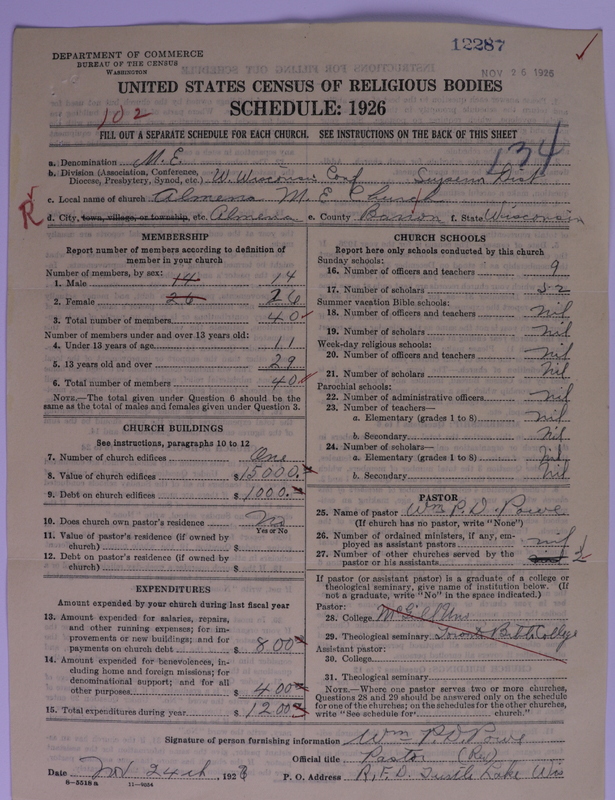 12287
DEPARTMENT OF COMMERCE
BUREAU OF THE CENSUS
WASHINGTON
NOV 26 1926
UNITED STATES CENSUS OF RELIGIOUS BODIES
SCHEDULE: 1926
102
FILL OUT A SEPARATE SCHEDULE FOR EACH CHURCH. SEE INSTRUCTIONS ON THE BACK OF THIS SHEET
134
a. Denomination M.E.
b. Division (Association, Conference, Diocese, Presbytery, Synod, etc.) W. Wisconsin Conf Superior Dist
c. Local name of church Almena M. E. Church
R
d. City, town, village, or township, etc. Almena e. County Barron f. State Wisconsin
MEMBERSHIP
Report number of members according to definition of
member in your church
Number of members, by sex:
1. Male 14 14
2. Female 26 26
3. Total number of members 40
Number of members under and over 13 years old:
4. Under 13 years of age 11
5. 13 years old and over 29
6. Total number of members 40
NOTE.—The total given under Question 6 should be
same as the total of males and females given under Question 3.
CHURCH BUILDINGS
See instructions, paragraphs 10 to 12
7. Number of church edifices One
8. Value of church edifices $15000.
9. Debt on church edifices $1000.
10. Does church own pastor's residence? No
Yes or No
11. Value of pastor's residence (if owned by
church) $
12. Debt on pastor's residence (if owned by
church) $
EXPENDITURES
Amount expended by your church during last fiscal year
13. Amount expended for salaries, repairs,
and other running expenses; for im-
provements or new buildings; and for
payments on church debt $800
14. Amount expended for benevolences, in-
cluding home and foreign missions; for
denominational support; and for all
other purposes $400
15. Total expenditures during year $1200
CHURCH SCHOOLS
Report here only schools conducted by this church
Sunday schools:
16. Number of officers and teachers 9
17. Number of scholars 52
Summer vacation Bible schools:
18. Number of officers and teachers Nil
19. Number of scholars Nil
Week-day religious schools:
20. Number of officers and teachers Nil
21. Number of scholars Nil
Parochial schools:
22. Number of administrative officers Nil
23. Number of teachers—
a. Elementary (grades 1 to 8) Nil
b. Secondary Nil
24. Number of scholars—
a. Elementary (grades 1 to 8) Nil
b. Secondary Nil
PASTOR
25. Name of pastor Wm P. D. Powe
(If church has no pastor, write "None")
26. Number of ordained ministers, if any, em-
ployed as assistant pastors Nil
27. Number of other churches served by the
pastor or his assistants 2
If pastor (or assistant pastor) is a graduate of a college or
theological seminary, give name of institution below. (If
not a graduate, write "No" in the space indicated.)
Pastor:
28. College McGill Uni
29. Theological seminary Toronto Bible College
Assistant pastor:
30. College
31. Theological seminary
NOTE.—Where one pastor serves two or more churches,
Questions 28 and 29 should be answered only on the schedule
for one of the churches; on the schedules for the other churches,
write "See schedule for church."
Signature of person furnishing information Wm P. D. Powe
Official title Pastor (Rev)
Date Nov 24th, 1926 P. O. Address R.F.D. Turtle Lake Wis
8-5518a 11-9224